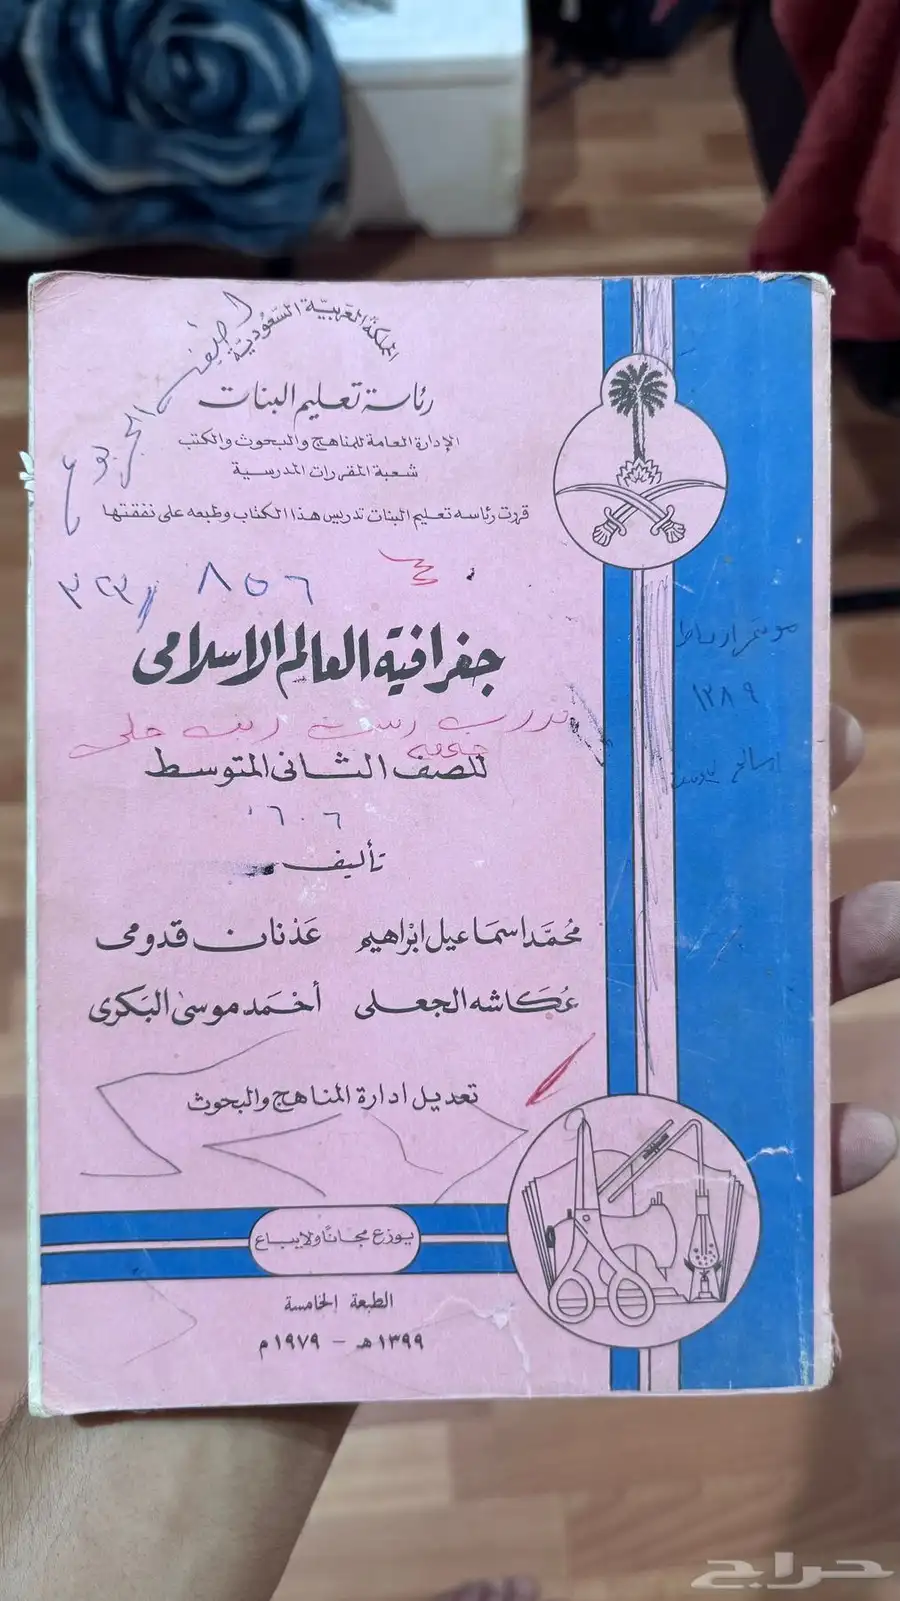 المملكة العربية السعودية
رئاسة تعليم البنات
الإدارة العامة للمناهج والبحوث والكتب
شعبة المقررات المدرسية
قررت رئاسه تعليم البنات تدريس هذا الكتاب وطبعه على نفقتها
٨٥٦
جغرافية العالم الاسلامى
١٣٨٩
للصف الثانى المتوسط
٦٠٦
تأليف
محمد اسماعيل ابراهيم عدنان قدومى
عكاشه الجعلى أحمد موسى البكرى
تعديل ادارة المناهج والبحوث
يوزع مجانا ولايباع
الطبعة الخامسة
١٣٩٩ هـ - ١٩٧٩ م
حراج